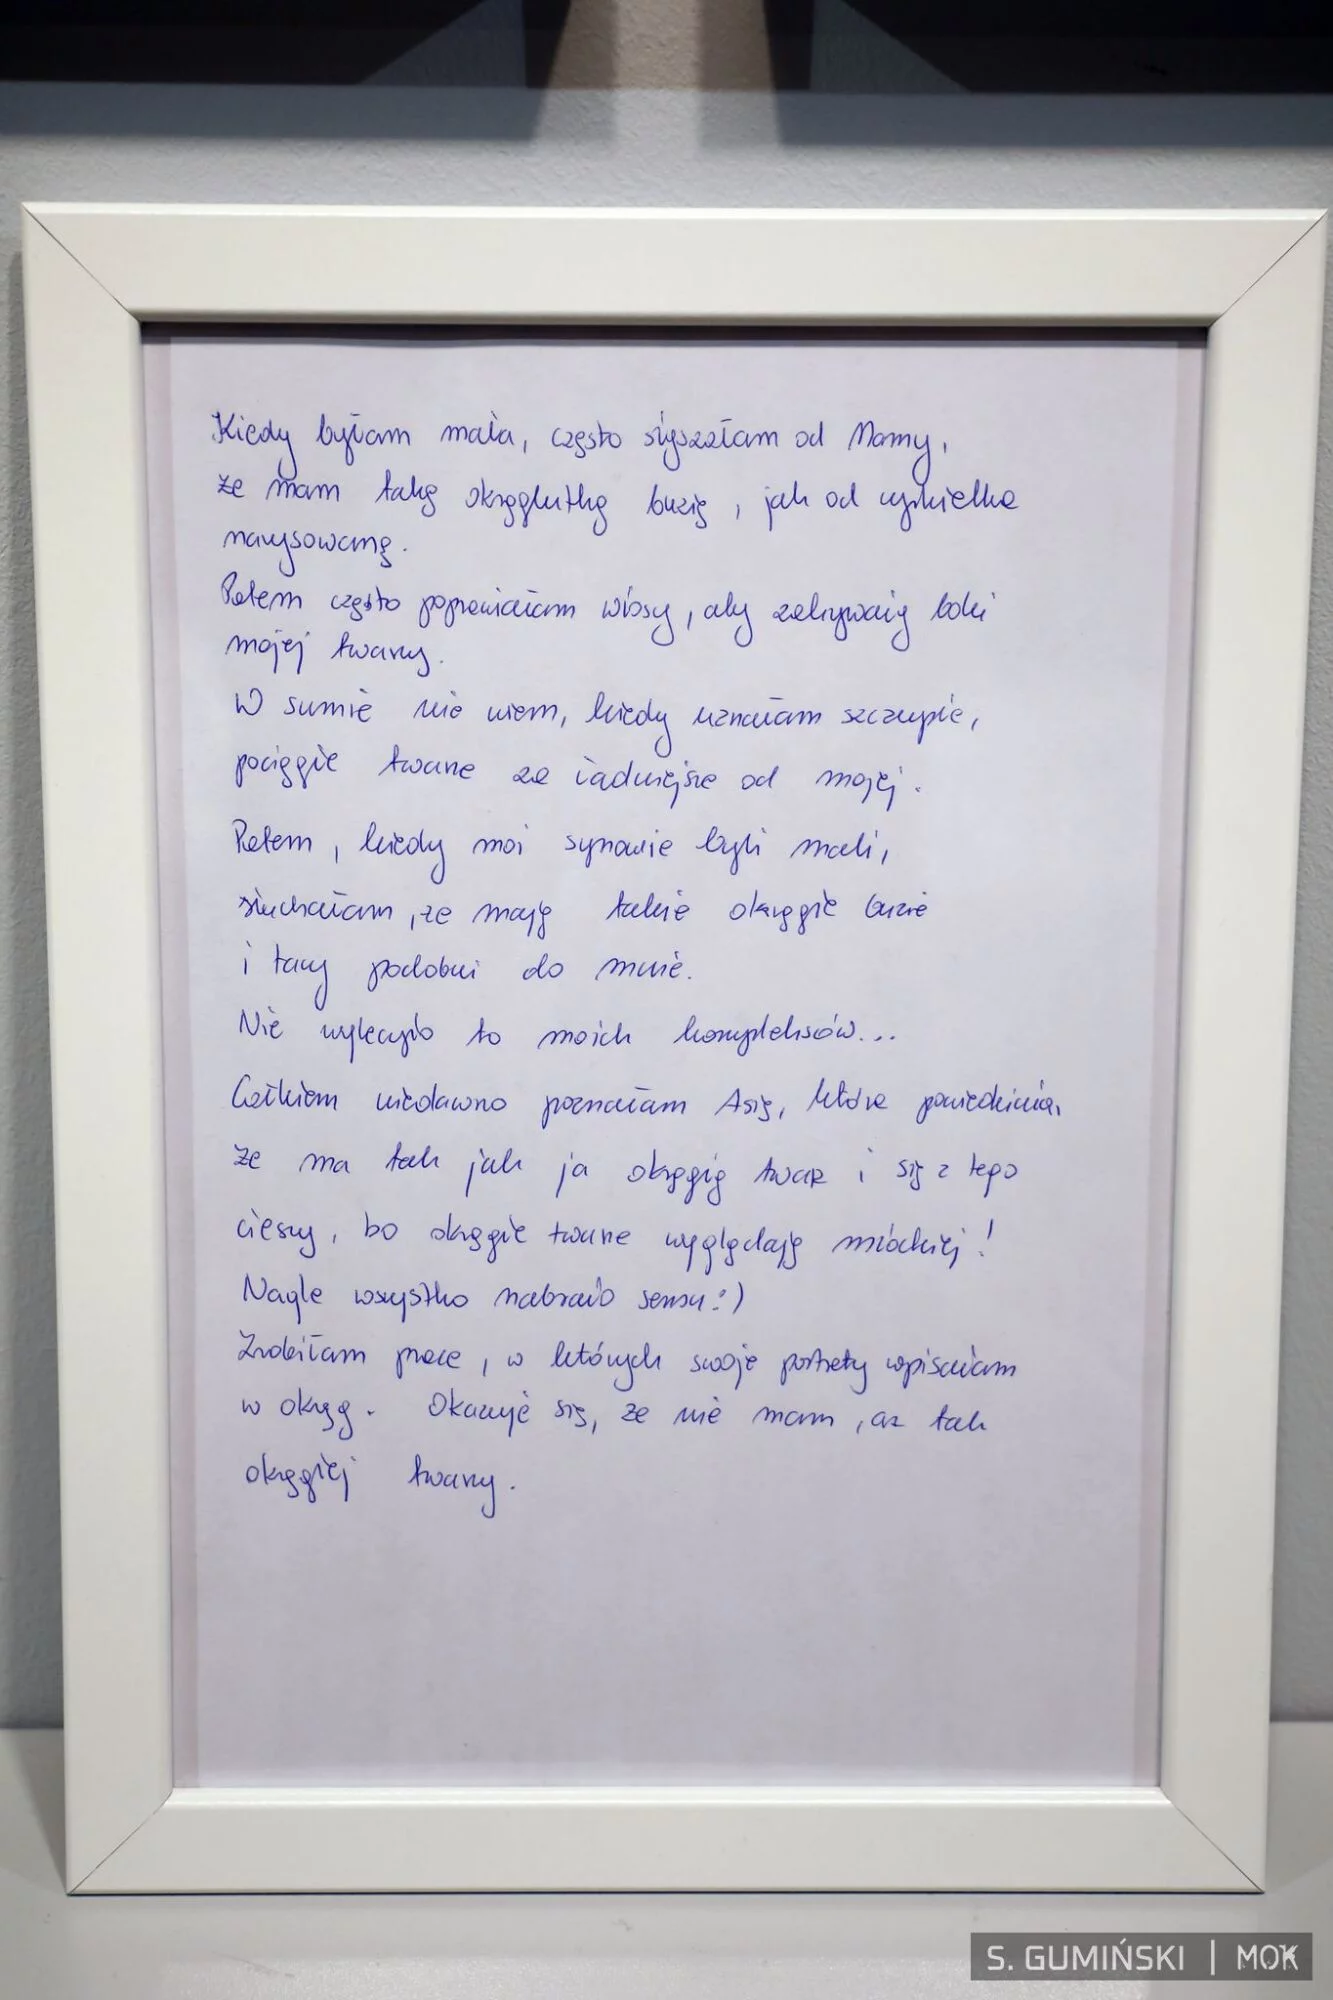 Kiedy byłam mała, często słyszałam od Mamy,
że mam taką okrąglutką buzię, jak od cyrkielka
narysowaną.
Potem często poprawiałam włosy, aby zakrywały boki
mojej twarzy.
W sumie nie wiem, kiedy uznałam szczupłe,
pociągłe twarze za ładniejsze od mojej.
Potem, kiedy moi synowie byli mali,
słuchałam, że mają takie okrągłe buzie
i tacy podobni do mnie.
Nie wyleczyło to moich kompleksów...
Całkiem niedawno poznałam Asię, która powiedziała,
że ma tak jak ja okrągłą twarz i się z tego
cieszy, bo okrągłe twarze wyglądają młodziej!
Nagle wszystko nabrało sensu :)
Zrobiłam prace, w których swoje portrety wpisałam
w okrąg. Okazuje się, że nie mam, aż tak
okrągłej twarzy.
S. GUMIŃSKI | MOK